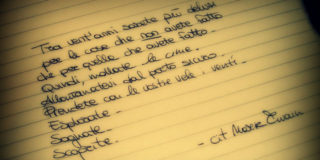 Tra vent'anni sarete più delusi
per le cose che non avete fatto
che per quelle che avete fatto.
Quindi, mollate le cime.
Allontanatevi dal porto sicuro.
Prendete con le vostre vele i venti.
Esplorate.
Sognate.
Scoprite.
- cit Mark Twain